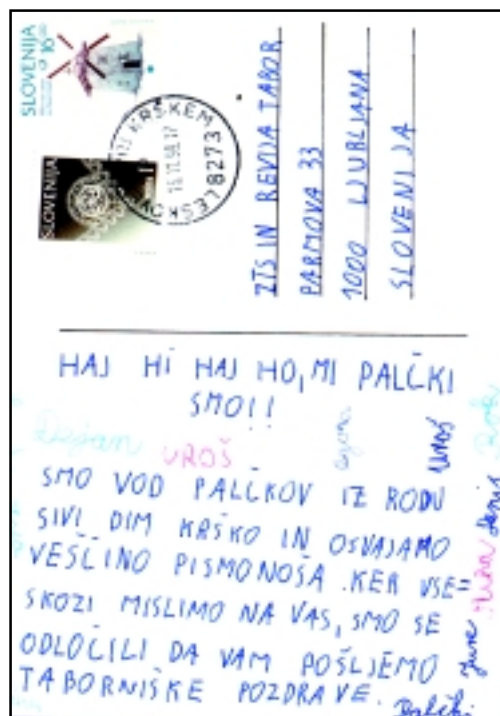 SLOVENIJA
16
SLOVENIJA
KRŠKEM
8273
LESKOV
ZTS IN REVIJA TABOR
PARMOVA 33
1000 LJUBLJANA
SLOVENIJA
HAJ HI HAJ HO, MI PALČKI
SMO!!
Dejan
UROŠ
UROŠ
Rok
Denis
SMO VOD PALČKOV IZ RODU
SIVI DIM KRŠKO IN OSVAJAMO
VEŠČINO PISMONOŠA. KER VSE=
SKOZI MISLIMO NA VAS, SMO SE
ODLOČILI DA VAM POŠLJEMO
TABORNIŠKE POZDRAVE.
Palčki